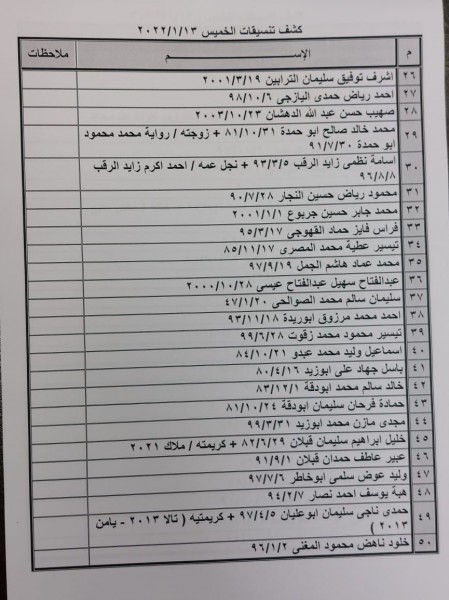 كشف تنسيقات الخميس ٢٠٢٢/١/١٣
م الإســــم ملاحظات
٢٦ اشرف توفيق سليمان الترابين ٢٠٠١/٣/١٩
٢٧ احمد رياض حمدى اليازجى ٩٨/١٠/٦
٢٨ صهيب حسن عبد الله الدهشان ٢٠٠٣/١٠/٢٣
٢٩ محمد خالد صالح ابو حمدة ٨١/١٠/٣١ + زوجته / رواية محمد محمود
ابو حمدة ٩١/٧/٣٠
٣٠ اسامة نظمى زايد الرقب ٩٣/٣/٥ + نجل عمه / احمد اكرم زايد الرقب
٩٦/٨/٨
٣١ محمود رياض حسين النجار ٩٠/٧/٢٨
٣٢ محمد جابر حسين جربوع ٢٠٠١/١/١
٣٣ فراس فايز حماد القهوجى ٩٥/٣/١٧
٣٤ تيسير عطية محمد المصرى ٨٥/١١/١٧
٣٥ محمد عماد هاشم الجمل ٩٧/٩/١٩
٣٦ عبدالفتاح سهيل عبدالفتاح عيسى ٢٠٠٠/١٠/٢٨
٣٧ سليمان سالم محمد الصوالحى ٤٧/١/٢٠
٣٨ احمد محمد مرزوق ابوريدة ٩٣/١١/١٨
٣٩ تيسير محمود محمد زقوت ٩٩/٦/٢٨
٤٠ اسماعيل وليد محمد عبدو ٨٤/١٠/٢١
٤١ باسل جهاد على ابوزيد ٨٠/٤/١٦
٤٢ خالد سالم محمد ابودقة ٨٣/١٢/١
٤٣ حمادة فرحان سليمان ابودقة ٨١/١٠/٢٤
٤٤ مجدى مازن محمد ابوزيد ٩٩/٣/٣١
٤٥ خليل ابراهيم سليمان قبلان ٨٢/٦/٢٩ + كريمته / ملاك ٢٠٢١
٤٦ عبير عاطف حمدان قبلان ٩١/٩/١
٤٧ وليد عوض سلمى ابوخاطر ٩٧/٧/٦
٤٨ هبة يوسف احمد نصار ٩٤/٢/٧
٤٩ حمدى ناجى سليمان ابوعليان ٩٧/٤/٥ + كريمتيه ( تالا ٢٠١٣ - يامن
٢٠١٣ )
٥٠ خلود ناهض محمود المغنى ٩٦/١/٢